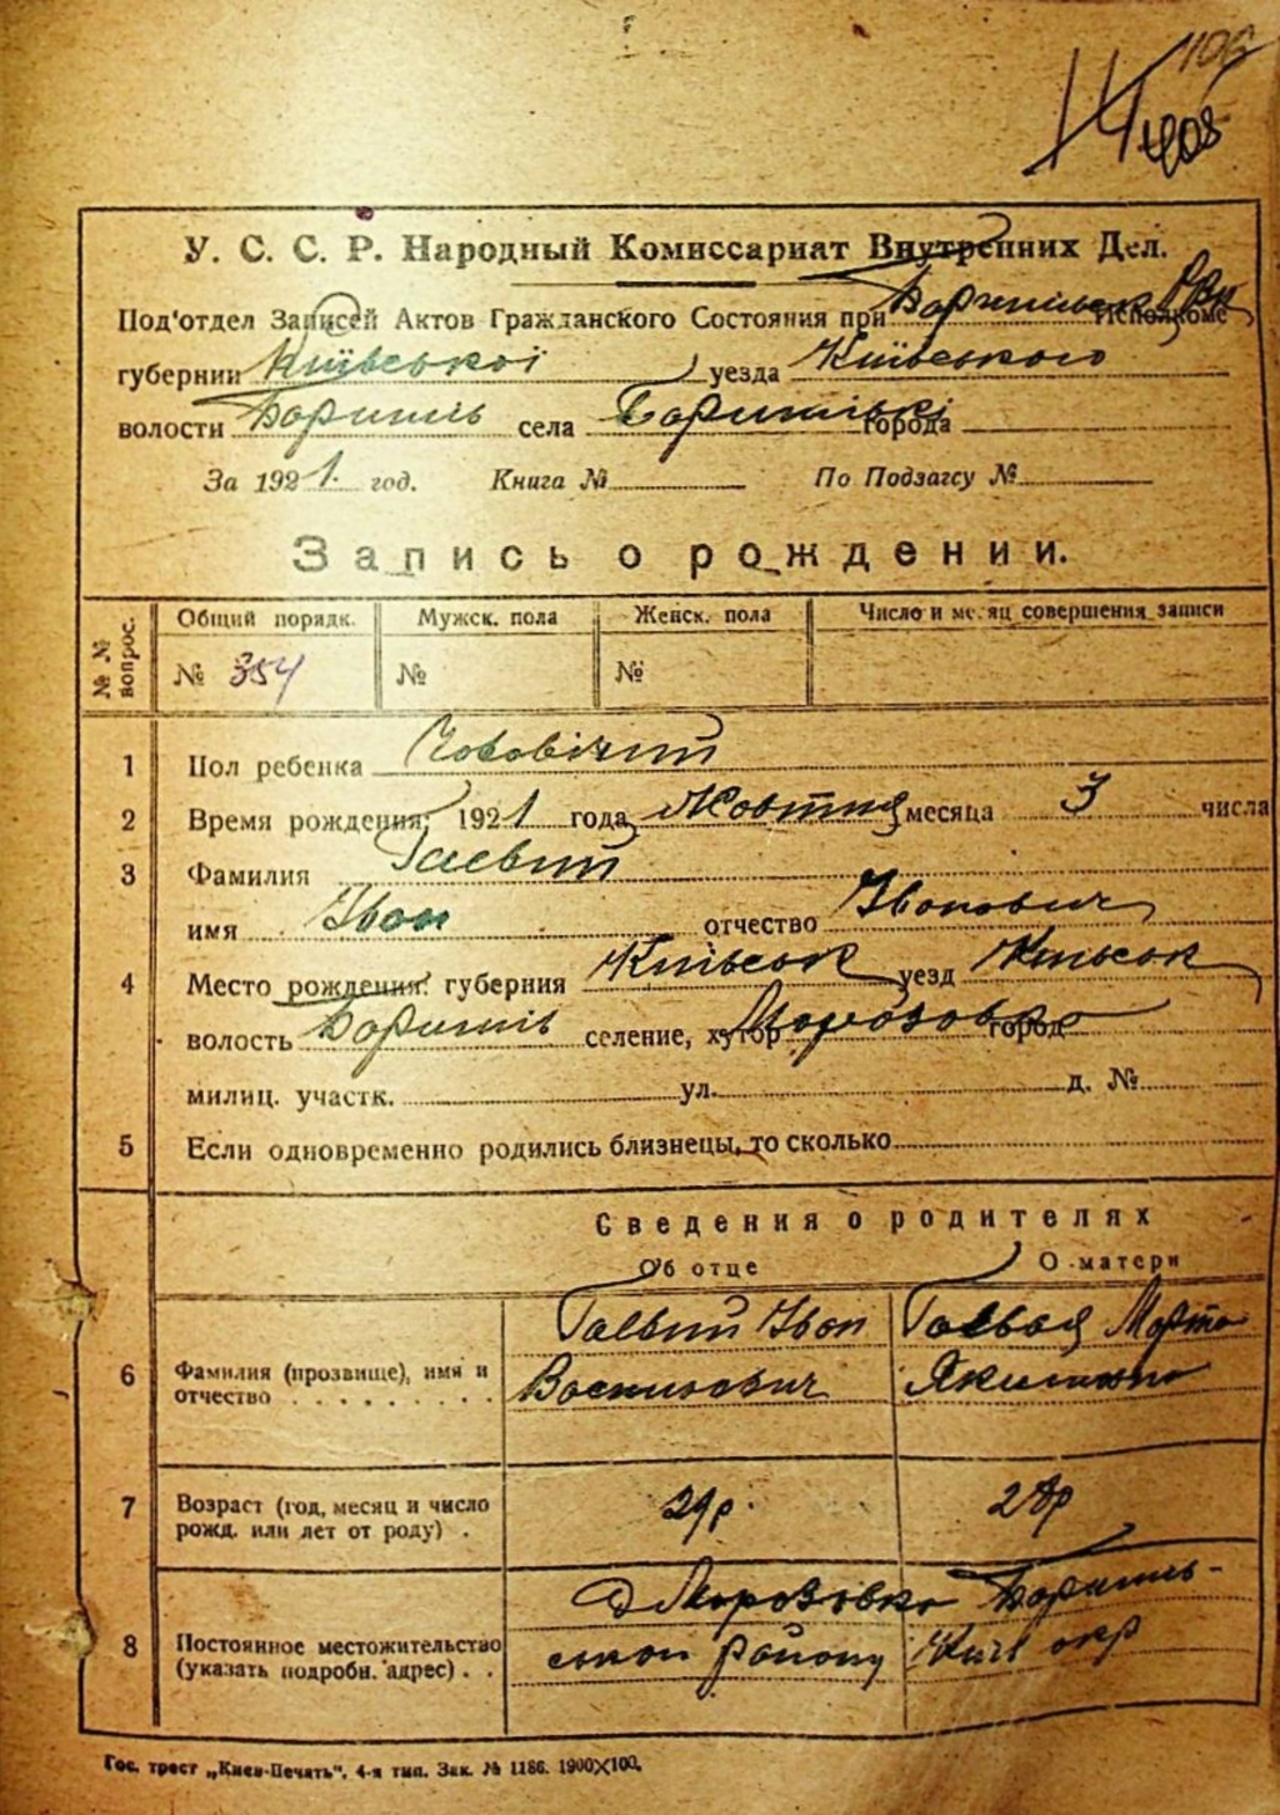 106
14
408
У. С. С. Р. Народный Комиссариат Внутренних Дел.
Под'отдел Записей Актов Гражданского Состояния при Исполкоме
губернии Київської уезда Київського
волости Бориспіль села города
За 1921 год. Книга № По Подзагсу №
Запись о рождении.
№ № вопрос. Общий порядк. Мужск. пола Женск. пола Число и месяц совершения записи
№ 354 № №
1 Пол ребенка Чоловічий
2 Время рождения: 1921 года Жовтня месяца 3 числа
3 Фамилия Гаєвий
имя Іван отчество Іванович
4 Место рождения: губерния Київськ уезд Київськ
волость Бориспіль селение, хутор Морозовка город
милиц. участк. ул. д. №
5 Если одновременно родились близнецы, то сколько
Сведения о родителях
Об отце О матери
6 Фамилия (прозвище), имя и отчество Гаєвий Іван Васильович Гаєвая Марта Якимовна
7 Возраст (год, месяц и число рожд. или лет от роду) 29р. 28р
8 Постоянное местожительство (указать подробн. адрес) Морозівка Бориспіль-
ськои району Київ окр
Гос. трест „Киев-Печать“, 4-я тип. Зак. № 1186. 1900×100.